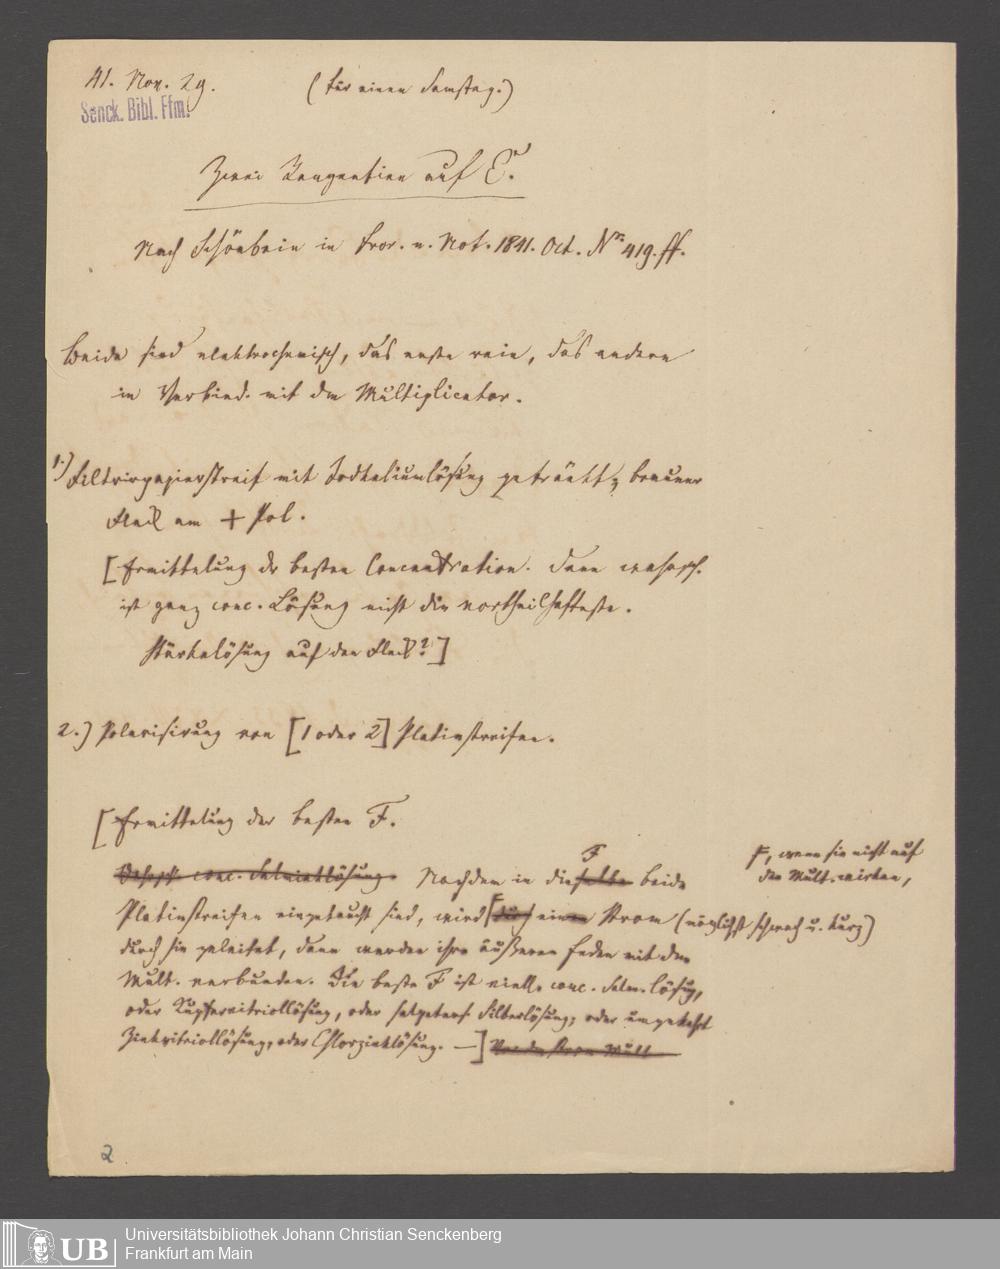 41. Nov. 29.
(Für einen Samstag.)
Senck. Bibl. Ffm.
Zwei Reagentien auf E.
Nach Schönbein in Fror. n. Not. 1841. Oct. Nr 419. ff.
Beide sind elektrochemisch, das erste rein, das andere
in Verbind. mit dem Multiplicator.
1.) Filtrirpapierstreif mit Jodkaliumlösung getränkt; brauner
Fleck am + Pol.
[Ermittelung der besten Concentration. Denn
ist ganz conc. Lösung nicht die vortheilhafteste.
Stärkelösung auf den Fleck?]
2.) Polarisirung von [1 oder 2] Platinstreifen.
[Ermittelung der besten F.
conc. Salmiaklösung. Nachdem in die F beide
Platinstreifen eingetaucht sind, wird ein Strom (möglichst schwach u. kurz)
F, wenn sie nicht auf
den Mult. wirken,
durch sie geleitet, dann werden ihre äußeren Enden mit dem
Mult. verbunden. Die beste F ist viell. conc. Salm. lösung,
oder Kupfervitriollösung, oder salpeters. Silberlösung, oder umgekehrt
Zinkvitriollösung, oder Chlorzinklösung. —]
2
UB
Universitätsbibliothek Johann Christian Senckenberg
Frankfurt am Main